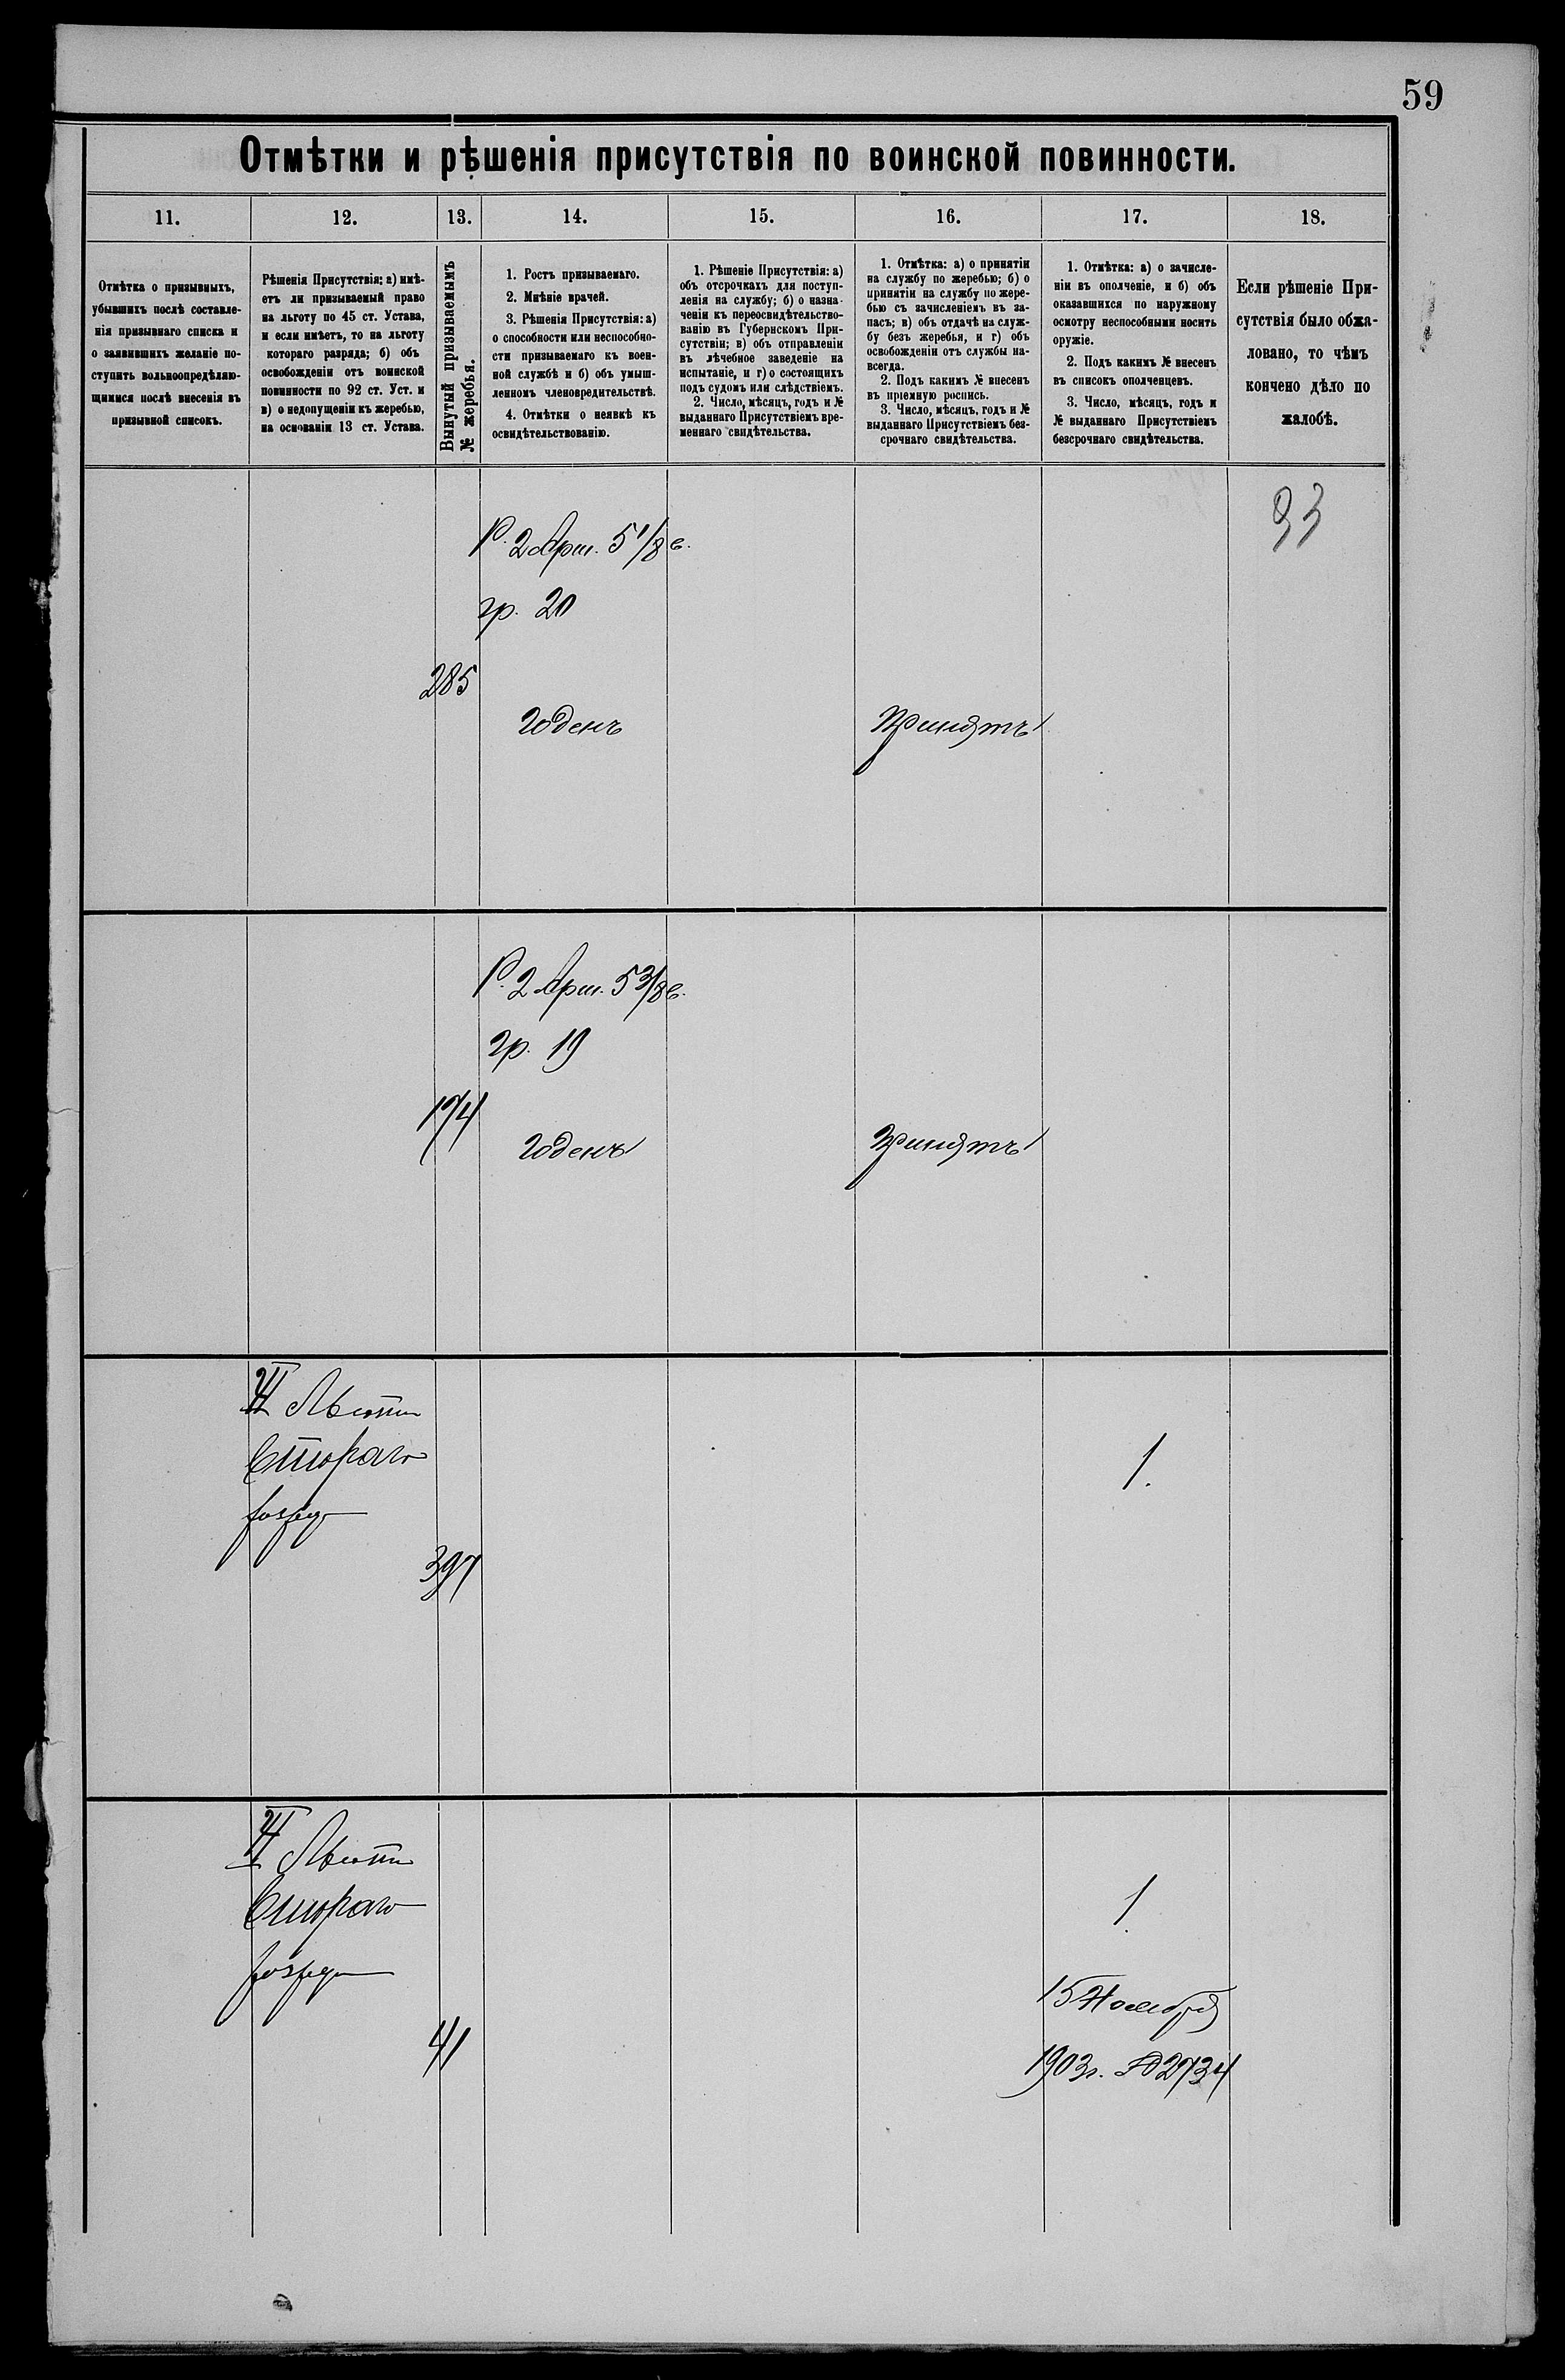 59
Отмѣтки и рѣшенія присутствія по воинской повинности.
11.
12.
13.
14.
15.
16.
17.
18.
Отмѣтка о призывныхъ,
убывшихъ послѣ составле-
нія призывнаго списка и
о заявившихъ желаніе по-
ступить вольноопредѣляю-
щимися послѣ внесенія въ
призывной списокъ.
Рѣшенія Присутствія: а) имѣ-
етъ ли призываемый право
на льготу по 45 ст. Устава,
и если имѣетъ, то на льготу
котораго разряда; б) объ
освобожденіи отъ воинской
повинности по 92 ст. Уст. и
в) о недопущеніи къ жеребью,
на основаніи 13 ст. Устава.
Вынутый призываемымъ
№ жеребья.
1. Ростъ призываемаго.
2. Мнѣніе врачей.
3. Рѣшенія Присутствія: а)
о способности или неспособно-
сти призываемаго къ воен-
ной службѣ и б) объ умыш-
ленномъ членовредительствѣ.
4. Отмѣтки о неявкѣ къ
освидѣтельствованію.
1. Рѣшеніе Присутствія: а)
объ отсрочкахъ для поступ-
ленія на службу; б) о назна-
ченіи къ переосвидѣтельство-
ванію въ Губернскомъ При-
сутствіи; в) объ отправленіи
въ лѣчебное заведеніе на
испытаніе, и г) о состоящихъ
подъ судомъ или слѣдствіемъ.
2. Число, мѣсяцъ, годъ и №
выданнаго Присутствіемъ вре-
меннаго свидѣтельства.
1. Отмѣтка: а) о принятіи
на службу по жеребью; б) о
принятіи на службу по жере-
бью съ зачисленіемъ въ за-
пасъ; в) объ отдачѣ на служ-
бу безъ жеребья, и г) объ
освобожденіи отъ службы на-
всегда.
2. Подъ какимъ № внесенъ
въ пріемную роспись.
3. Число, мѣсяцъ, годъ и №
выданнаго Присутствіемъ без-
срочнаго свидѣтельства.
1. Отмѣтка: а) о зачисле-
ніи въ ополченіе, и б) объ
оказавшихся по наружному
осмотру неспособными носить
оружіе.
2. Подъ какимъ № внесенъ
въ списокъ ополченцевъ.
3. Число, мѣсяцъ, годъ и
№ выданнаго Присутствіемъ
безсрочнаго свидѣтельства.
Если рѣшеніе При-
сутствія было обжа-
ловано, то чѣмъ
кончено дѣло по
жалобѣ.
93
Р. 2 Арш. 5 1/8 в.
гр. 20
285
годенъ
принятъ
Р. 2 Арш. 5 3/8 в.
гр. 19
174
годенъ
принятъ
Льготы
Второго
разряд
397
1.
Льготы
Второго
разряд
41
1.
15 Ноября
1903 г. № 2734